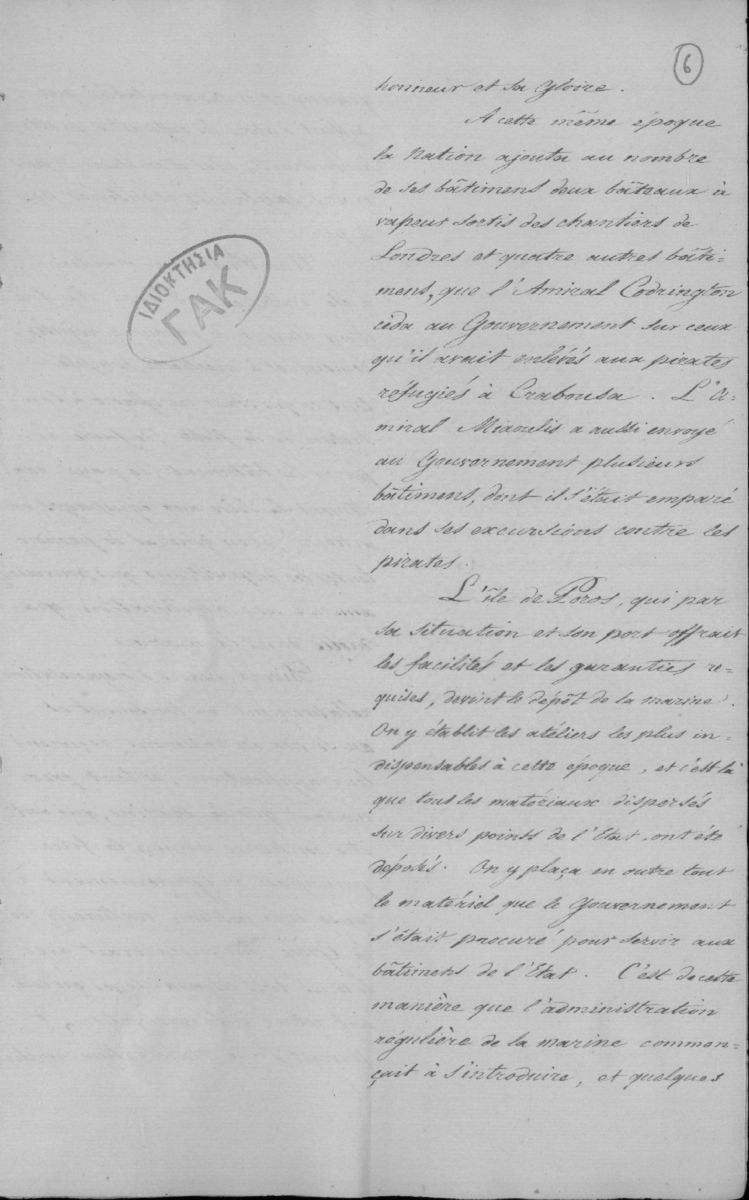 6
honneur et sa gloire.
A cette même époque
la Nation ajouta au nombre
de ses bâtimens deux bâteaux à
vapeur sortis des chantiers de
Londres et quatre autres bâti-
mens, que l'Amiral Codrington
céda au Gouvernement sur ceux
qu'il avait enlévés aux pirates
réfugiés à Crabousa. L'A-
miral Miaoulis a aussi envoyé
au Gouvernement plusieurs
bâtimens, dont il s'était emparé
dans ses excursions contre les
pirates.
L'île de Poros, qui par
sa situation et son port offrait
les facilités et les garanties re-
quises, devint le dépôt de la marine.
On y établit les atéliers les plus in-
dispensables à cette époque, et c'est là
que tous les matériaux dispersés
sur divers points de l'Etat, ont été
déposés. On y plaça en outre tout
le matériel que le Gouvernement
s'était procuré pour servir aux
bâtimens de l'Etat. C'est de cette
manière que l'administration
régulière de la marine commen-
çait à s'introduire, et quelques
ΙΔΙΟΚΤΗΣΙΑ
ΓΑΚ